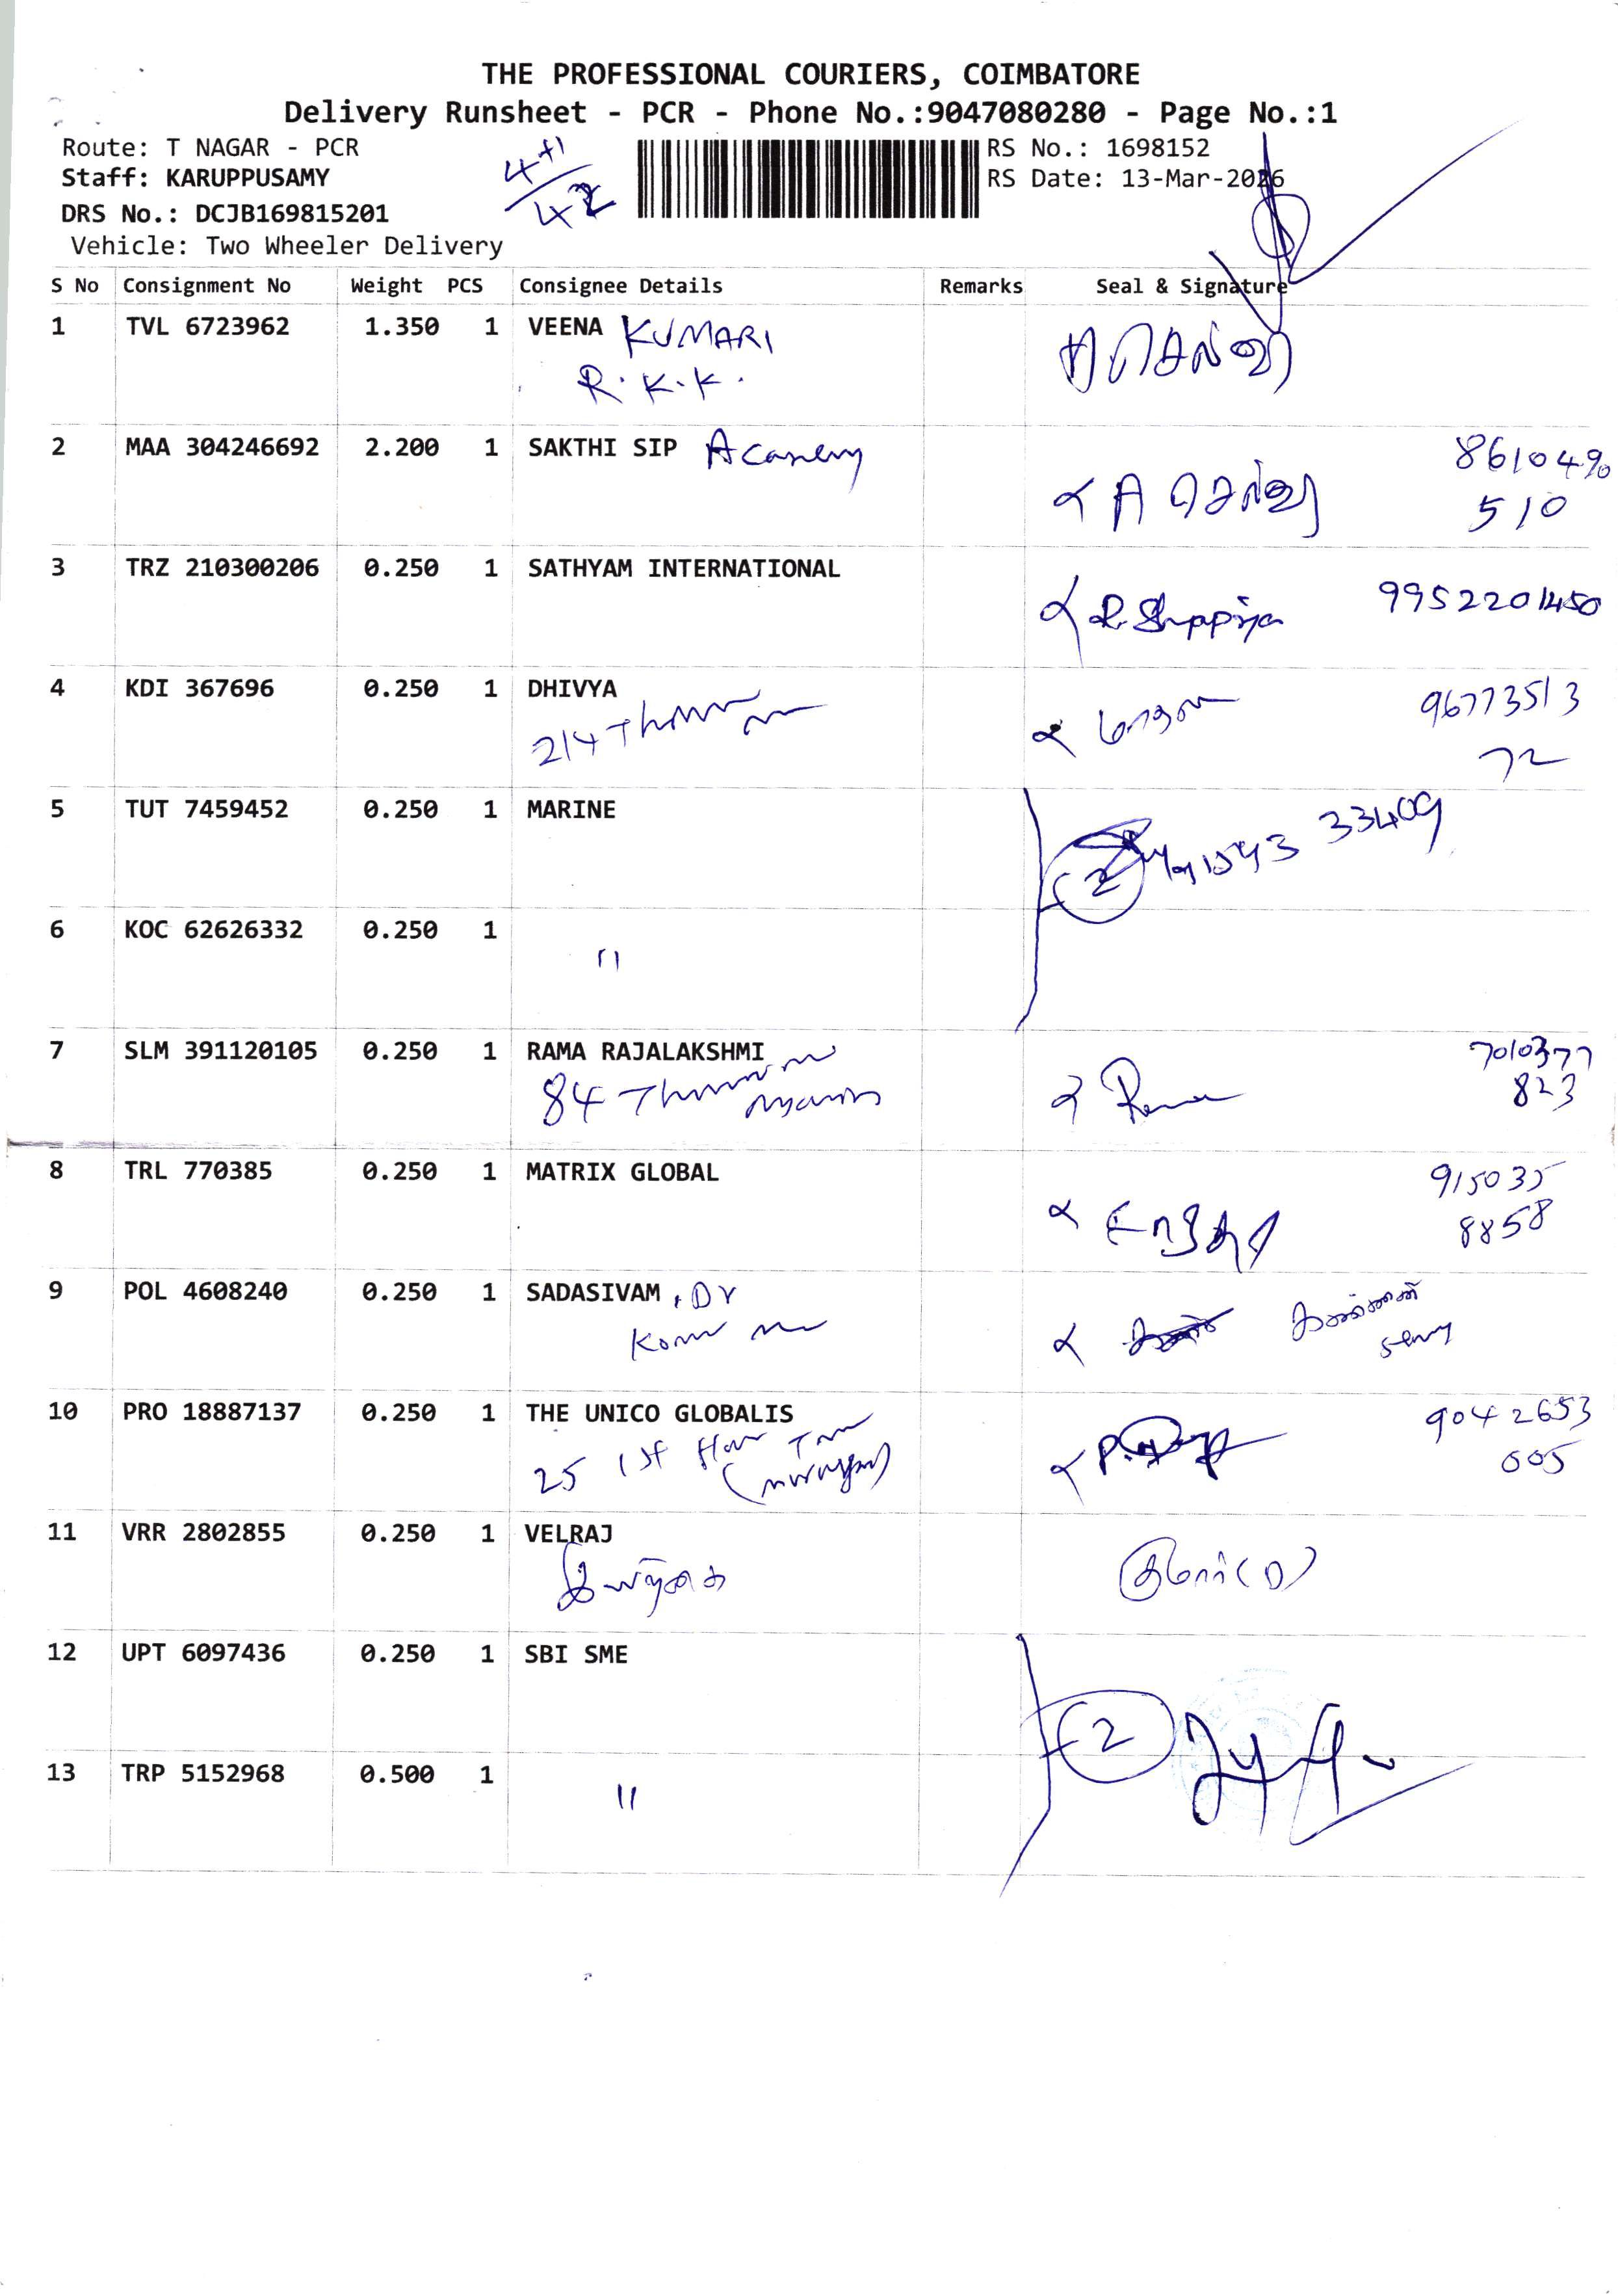 THE PROFESSIONAL COURIERS, COIMBATORE
Delivery Runsheet - PCR - Phone No.:9047080280 - Page No.:1
Route: T NAGAR - PCR
4+1
RS No.: 1698152
Staff: KARUPPUSAMY
42
RS Date: 13-Mar-2026
DRS No.: DCJB169815201
Vehicle: Two Wheeler Delivery
S No Consignment No Weight PCS Consignee Details Remarks Seal & Signature
1 TVL 6723962 1.350 1 VEENA KUMARI
R.K.K.
2 MAA 304246692 2.200 1 SAKTHI SIP
510
3 TRZ 210300206 0.250 1 SATHYAM INTERNATIONAL
4 KDI 367696 0.250 1 DHIVYA 96773513
214
72
5 TUT 7459452 0.250 1 MARINE 33409
2
6 KOC 62626332 0.250 1
"
7 SLM 391120105 0.250 1 RAMA RAJALAKSHMI 7010377
84 823
8 TRL 770385 0.250 1 MATRIX GLOBAL 915035
8858
9 POL 4608240 0.250 1 SADASIVAM , DR
10 PRO 18887137 0.250 1 THE UNICO GLOBALIS 9042653
25 1st 005
11 VRR 2802855 0.250 1 VELRAJ
குமார் (D)
12 UPT 6097436 0.250 1 SBI SME
2
13 TRP 5152968 0.500 1
"